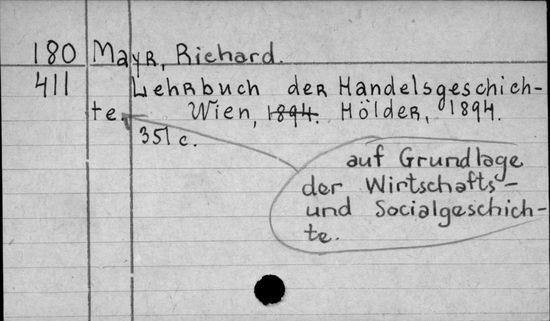 180 Mayr, Richard.
411 Lehrbuch der Handelsgeschich-
te, Wien, 1894. Hölder, 1894.
351 c.
auf Grundlage
der Wirtschafts-
und Socialgeschich-
te.